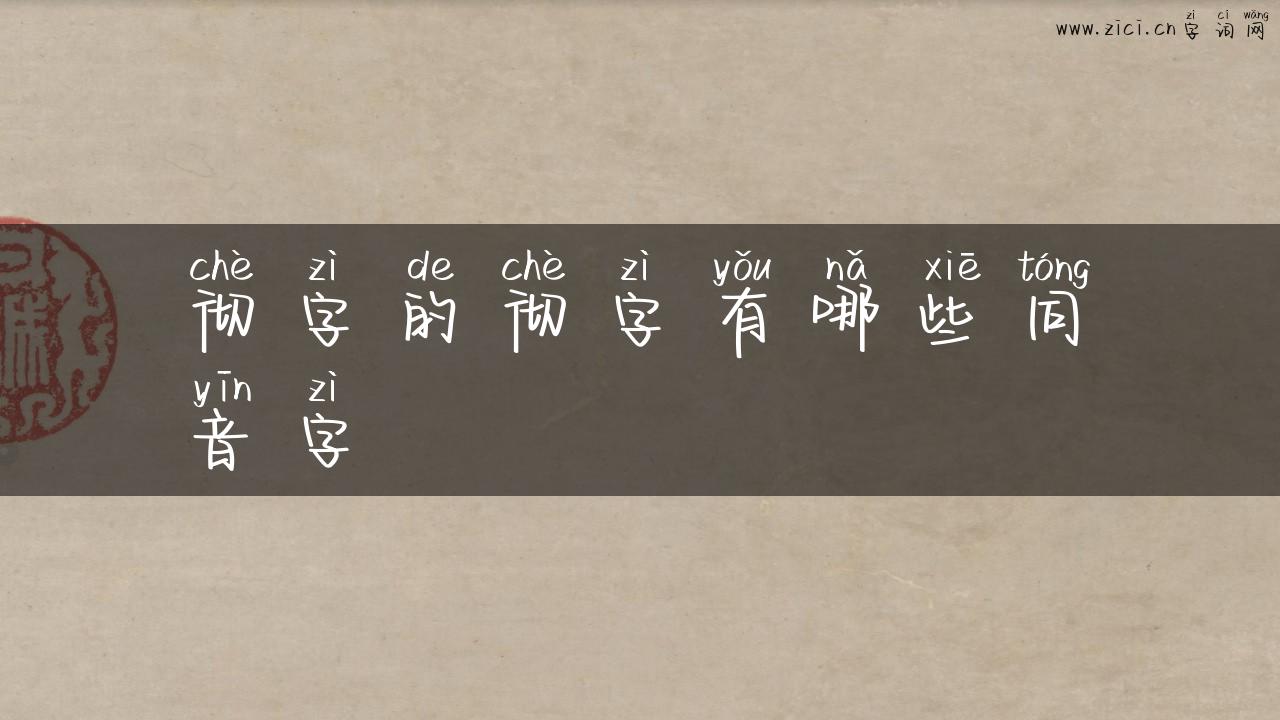 zì cí wǎng
www.zici.cn 字 词 网
chè zì de chè zì yǒu nǎ xiē tóng
彻 字 的 彻 字 有 哪 些 同
yīn zì
音 字